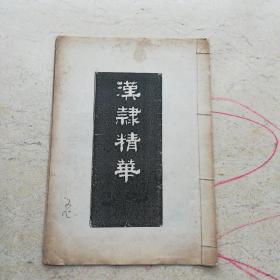 漢隸精華